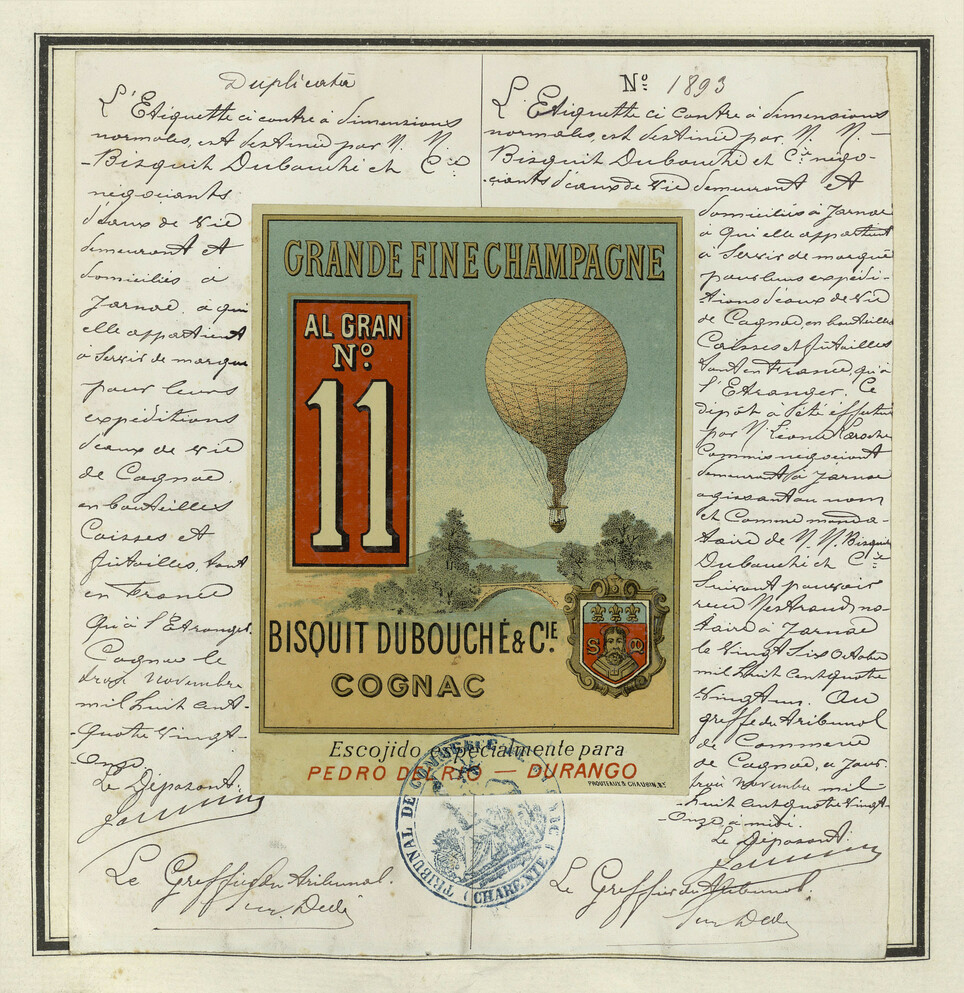 Duplicata
L'Etiquette ci contre à dimensions
normales, est destinée par M. M.
Bisquit Dubouché et Cie
négociants
d'eaux de Vie
demeurant et
domiciliés à
Jarnac, à qui
elle appartient
à Servir de marque
pour leurs
expéditions
d'eaux de vie
de Cognac
en bouteilles
Caisses et
futailles, tant
en France
qu'à l'Etranger.
Cognac le
trois Novembre
mil huit cent
quatre Vingt-
Onze
Le Déposant:
Le Greffier du Tribunal.
No 1893
L'Etiquette ci contre à dimensions
normales, est destinée par M. M.
Bisquit Dubouché et Cie négo-
ciants d'eaux de Vie demeurant et
domiciliés à Jarnac
à qui elle appartient
à Servir de marque
pour leurs expédi-
tions d'eaux de Vie
de Cognac en bouteilles
Caisses et futailles
tant en France, qu'à
l'Etranger. Ce
dépôt a été effectué
par M. Léonce Laroche
Commis négociant
demeurant à Jarnac
agissant au nom
et Comme manda-
taire de M. M. Bisquit
Dubouché et Cie
Suivant pouvoir
reçu no-
taire à Jarnac
le Vingt Six Octobre
mil huit cent quatre
Vingt onze. Au
greffe du Tribunal
de Commerce
de Cognac, ce jour
trois Novembre mil-
huit cent quatre Vingt-
Onze à midi.
Le Déposant:
Le Greffier du Tribunal.
GRANDE FINE CHAMPAGNE
AL GRAN
No.
11
S
BISQUIT DUBOUCHÉ & CIE.
COGNAC
Escojido especialmente para
PEDRO DEL RIO — DURANGO
PROUTEAUX & CHAUBIN, Nt.
TRIBUNAL DE COMMERCE DE COGNAC
(CHARENTE)